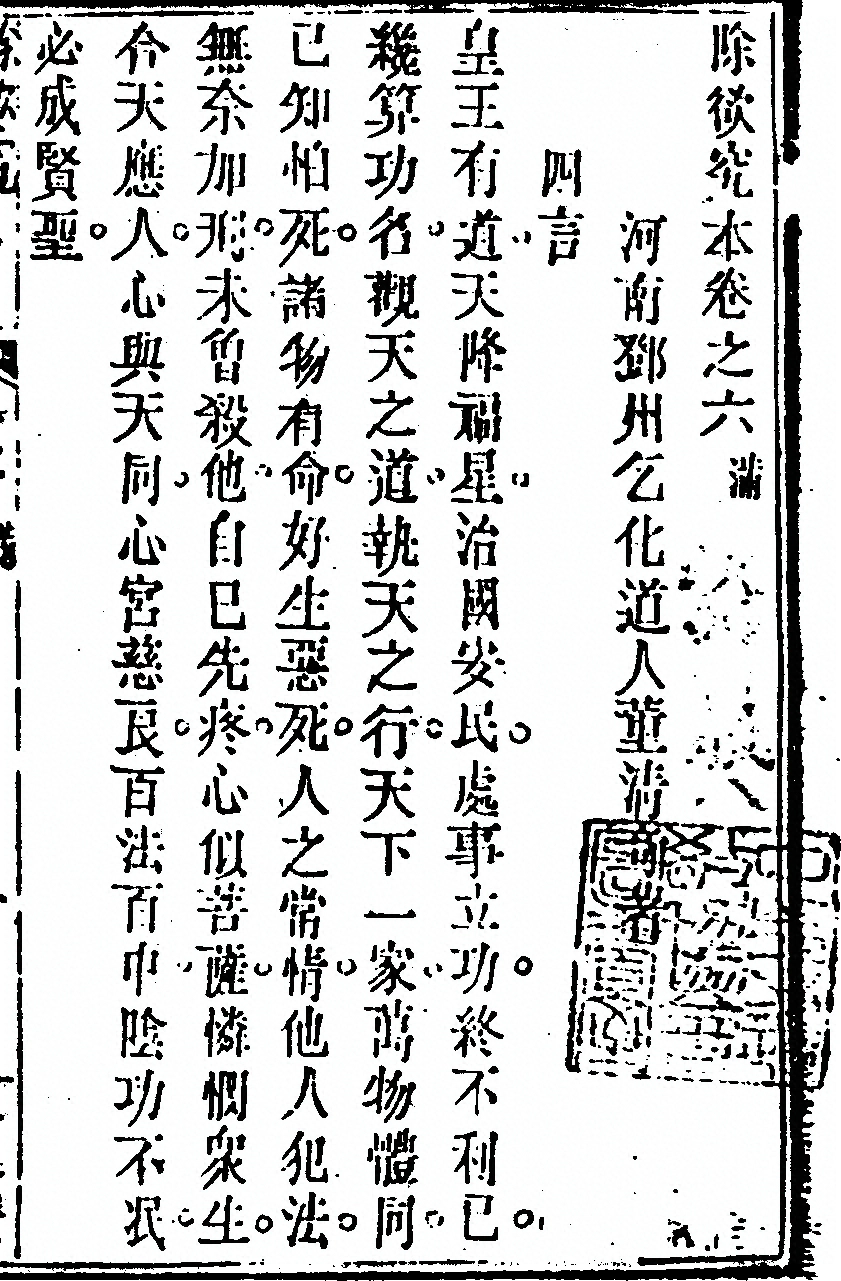 除欲究本卷之六 滿
河南鄧州乞化道人董清奇著
四言
皇王有道天降福星治國安民處事立功終不利己
纔算功名觀天之道執天之行天下一家萬物體同
已知怕死諸物有命好生惡死人之常情他人犯法
無奈加刑未曾殺他自已先疼心似菩薩憐憫衆生
合天應人心與天同心宮慈良百法百中陰功不泯
必成賢聖